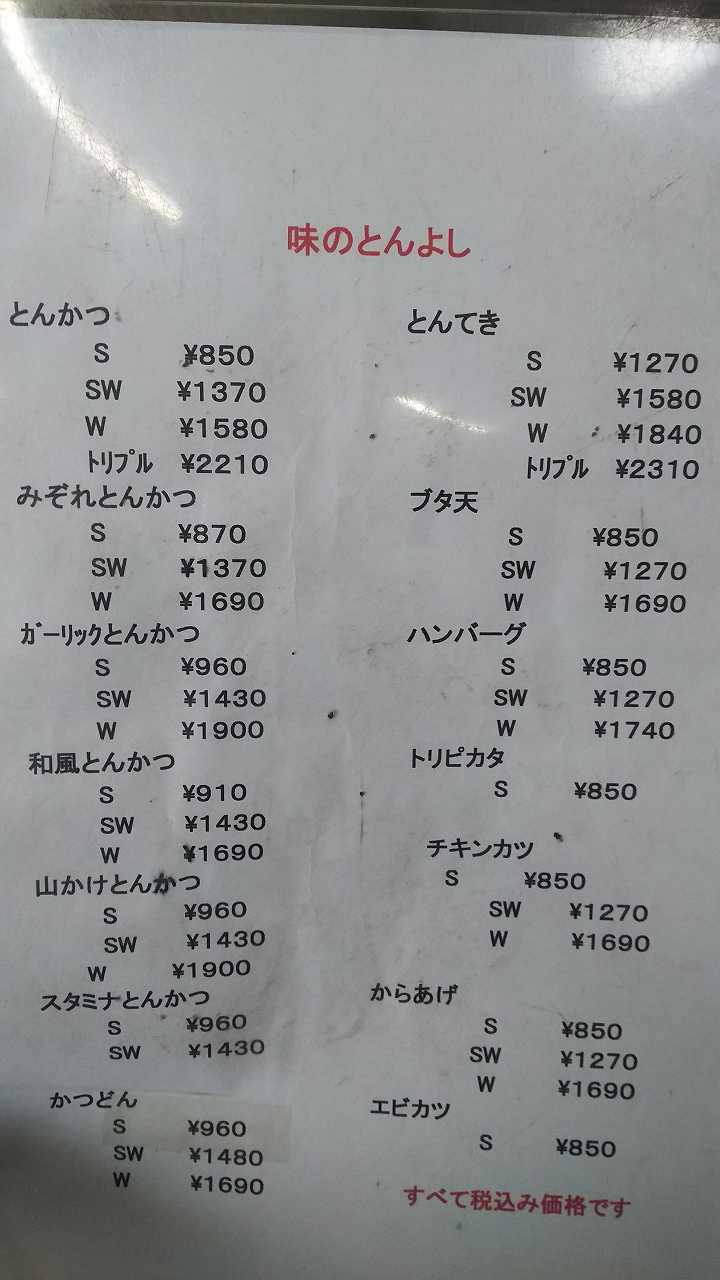 味のとんよし
とんかつ
S ¥850
SW ¥1370
W ¥1580
ﾄﾘﾌﾟﾙ ¥2210
みぞれとんかつ
S ¥870
SW ¥1370
W ¥1690
ｶﾞｰﾘｯｸとんかつ
S ¥960
SW ¥1430
W ¥1900
和風とんかつ
S ¥910
SW ¥1430
W ¥1690
山かけとんかつ
S ¥960
SW ¥1430
W ¥1900
スタミナとんかつ
S ¥960
SW ¥1430
かつどん
S ¥960
SW ¥1480
W ¥1690
とんてき
S ¥1270
SW ¥1580
W ¥1840
ﾄﾘﾌﾟﾙ ¥2310
ブタ天
S ¥850
SW ¥1270
W ¥1690
ハンバーグ
S ¥850
SW ¥1270
W ¥1740
トリピカタ
S ¥850
チキンカツ
S ¥850
SW ¥1270
W ¥1690
からあげ
S ¥850
SW ¥1270
W ¥1690
エビカツ
S ¥850
すべて税込み価格です